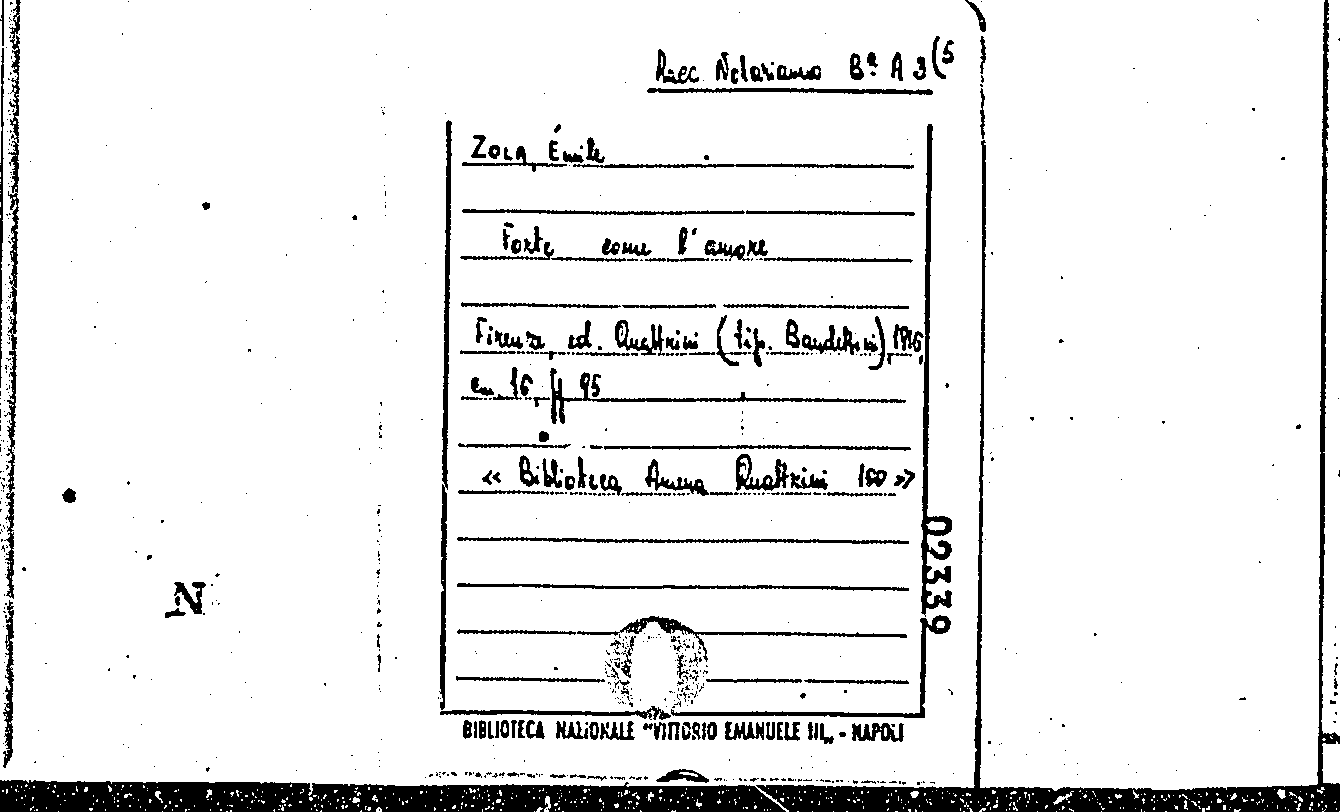 Racc Notarianno Bª A 3(5
ZOLA, Émile
Forte come l'amore
Firenze, ed. Quattrini (tip. Bandettini), 1916,
cm. 16, pp 95
« Biblioteca Amena Quattrini 100 »
02339
N
BIBLIOTECA NAZIONALE "VITTORIO EMANUELE III„ - NAPOLI